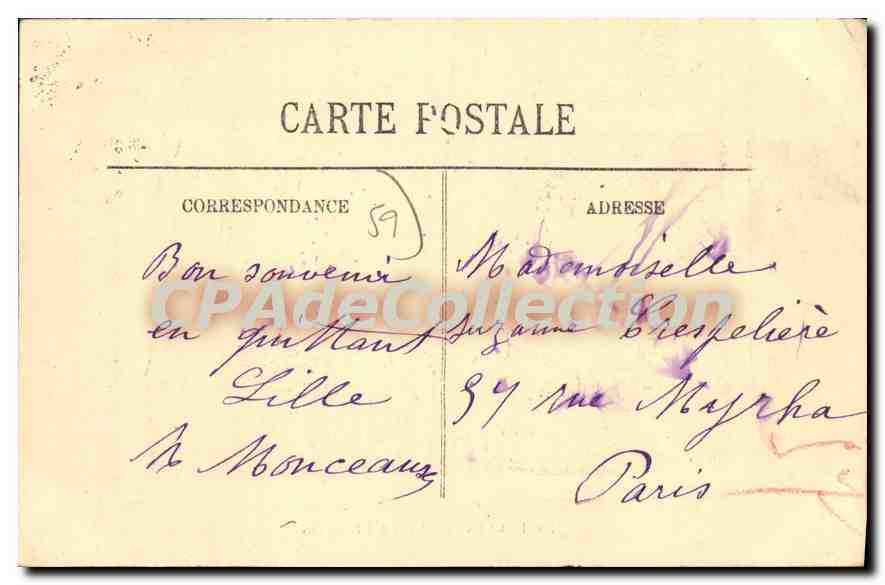 CARTE POSTALE
CORRESPONDANCE
59
Bon souvenir
en quittant
Lille
Monceaux
ADRESSE
Mademoiselle
Suzanne Crespelière
57 rue Myrha
Paris
CPAdeCollection.com